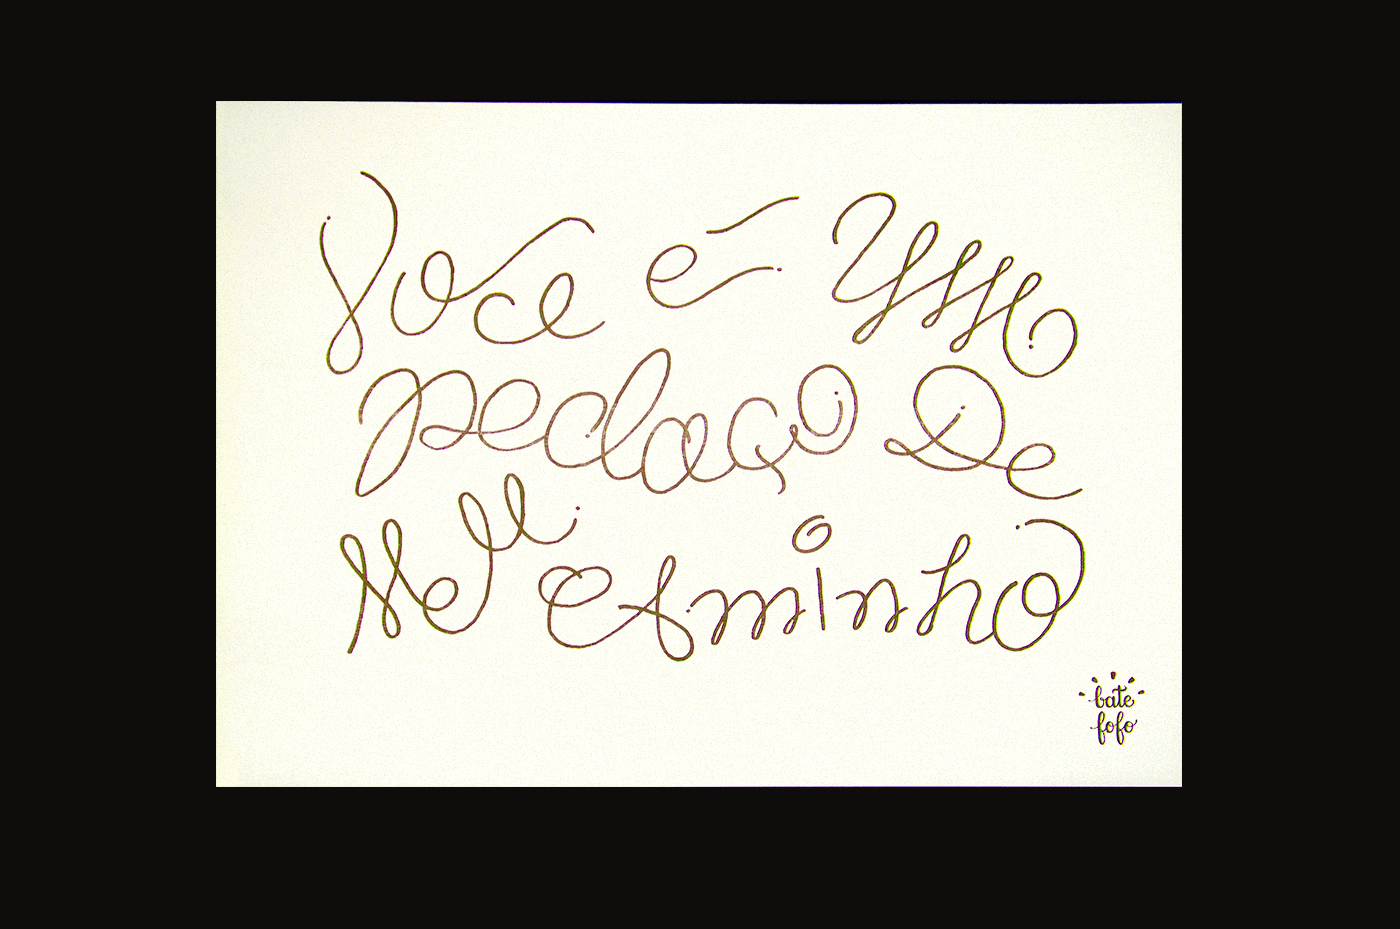 Você é Um
pedaço De
Meu CAminho
bate
fofo